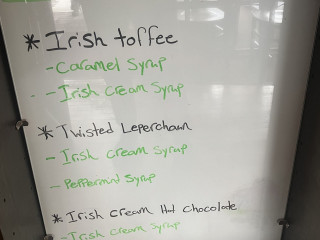 * Irish toffee
- Caramel Syrup
- Irish Cream Syrup
* Twisted Leperchaun
- Irish Cream Syrup
- Peppermint Syrup
* Irish Cream Hot Chocolate
- Irish Cream Syrup